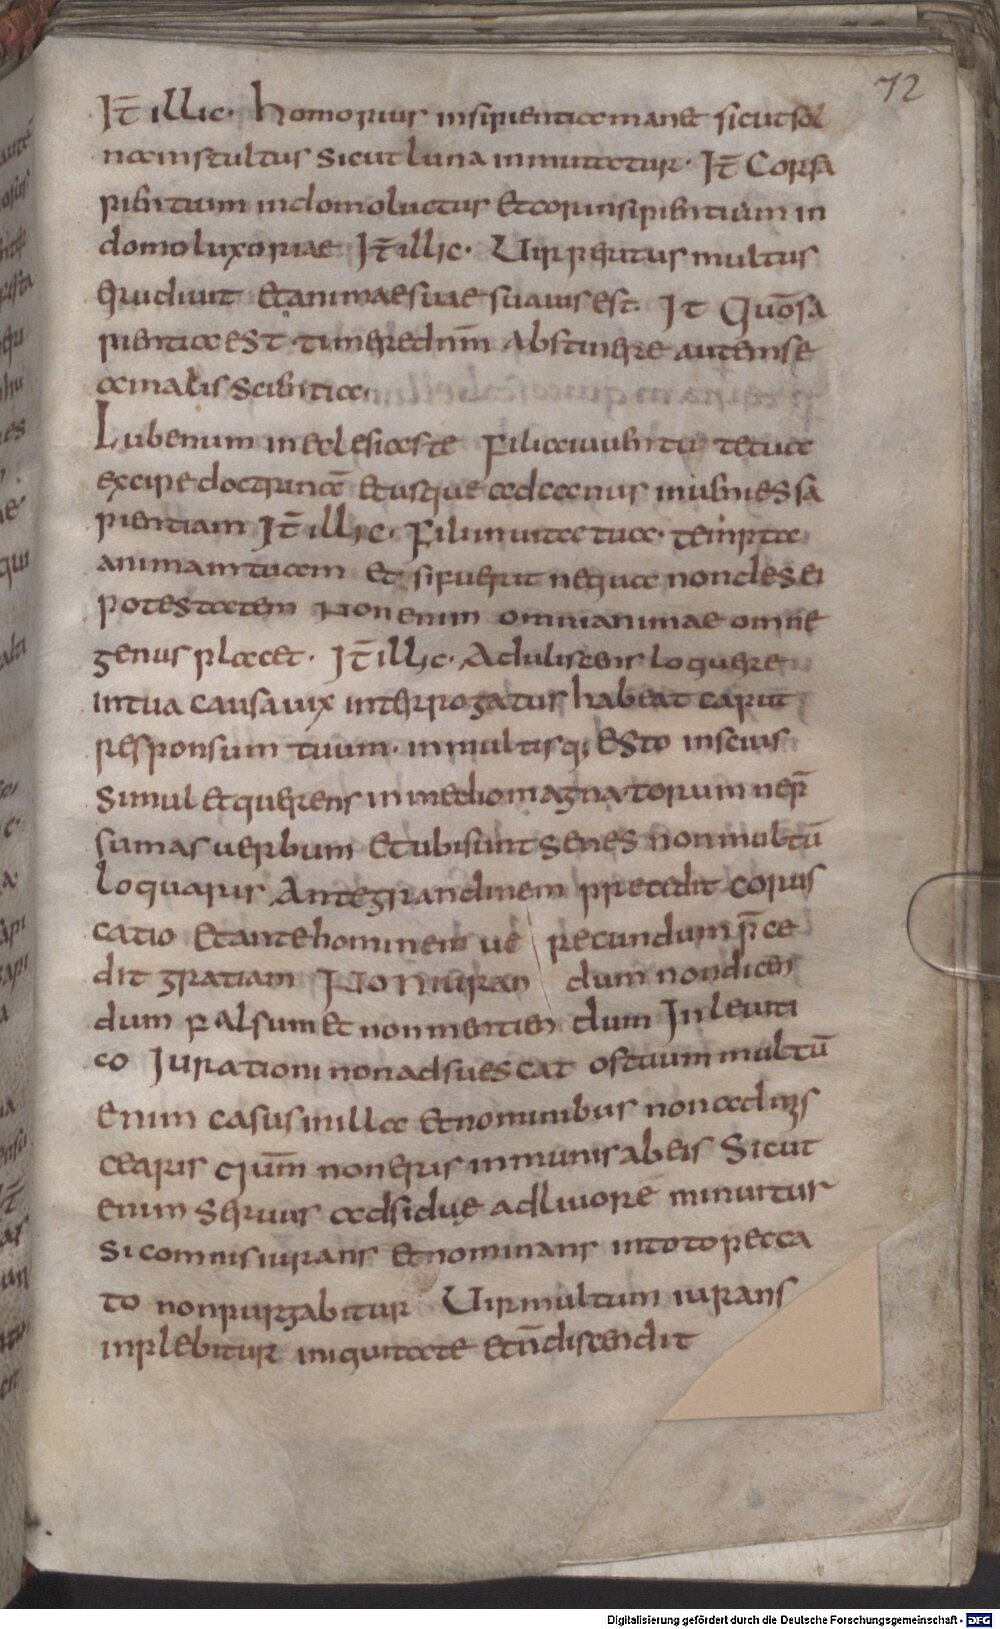 72
It̄ illic· homo pius insipientia manet sicut sol
nam stultus sicut luna inmutatur· It̄ Corsa
pientium in domo luctus Et cor insipientium in
domo luxoriae It̄ illic· Uir peritus multus
erudiuit Et animae suae suauis est· It Quōsa
pientia est· timere dnm̄ Abstinere autem se
a malis scientia·
Lubenum in eclesiaste Fili a iuuentu te tua
excipe doctrinā Et usque ad canus inuenies sā
pientiam It̄ illic· Fili in uita tua· tempta
animam tuam Et si fuerit nequa non des ei
potestatem Non enim omni animae omne
genus placet· It̄ illic· Aduliscens loquere
in tua causa uix interrogatus habeat caput
responsum tuum· in multisq; Esto inscius
Simul et querens in medio magnatorum nep̄
sumas uerbum Et ubi sunt senes non multū
loquaris Ante grandinem precedit corus
catio Et ante hominem ue recundum p̄ce
dit gratiam Non iuran dum non dicen
dum falsum et non mentien dum In leuiti
co Iurationi non adsuescat os tuum multū
enim casus in illa Et nominibus non admis
cearis qūm non eris inmunis ab eis Sicut
enim seruus adsidue ad liuore minuitur
sic omnis iurans Et nominans in toto pecca
to non purgabitur Uir multum iurans
inplebitur iniquitate Et n̄ discendit
Digitalisierung gefördert durch die Deutsche Forschungsgemeinschaft - DFG